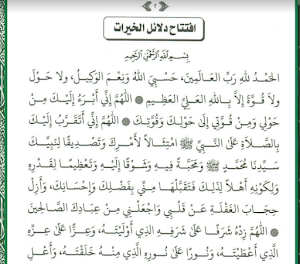 ٢
افتتاح دلائل الخيرات
بِسْمِ اللَّهِ الرَّحْمَٰنِ الرَّحِيمِ
الْحَمْدُ لِلَّهِ رَبِّ الْعَالَمِينَ، حَسْبِيَ اللَّهُ وَنِعْمَ الْوَكِيلُ، ولا حَوْلَ
ولا قُوَّةَ إِلَّا بِاللَّهِ الْعَلِيِّ الْعَظِيمِ ۞ اللَّهُمَّ إِنِّي أَبْرَءُ إِلَيْكَ مِنْ
حَوْلِي وَمِنْ قُوَّتِي إِلَى حَوْلِكَ وَقُوَّتِكَ ۞ اللَّهُمَّ إِنِّي أَتَقَرَّبُ إِلَيْكَ
بِالصَّلَاةِ عَلَى النَّبِيِّ ﷺ امْتِثَالًا لِأَمْرِكَ وَتَصْدِيقًا لِنَبِيِّكَ
سَيِّدِنَا مُحَمَّدٍ ﷺ وَمَحَبَّةً فِيهِ وَشَوْقًا إِلَيْهِ وَتَعْظِيمًا لِقَدْرِهِ
وَلِكَوْنِهِ أَهْلًا لِذَلِكَ فَتَقَبَّلْهَا مِنِّي بِفَضْلِكَ وَإِحْسَانِكَ، وَأَزِلْ
حِجَابَ الْغَفْلَةِ عَنْ قَلْبِي وَاجْعَلْنِي مِنْ عِبَادِكَ الصَّالِحِينَ
۞ اللَّهُمَّ زِدْهُ شَرَفًا عَلَى شَرَفِهِ الَّذِي أَوْلَيْتَهُ، وَعِزًّا عَلَى عِزِّهِ
الَّذِي أَعْطَيْتَهُ، وَنُورًا عَلَى نُورِهِ الَّذِي مِنْهُ خَلَقْتَهُ، وَأَعْلِ